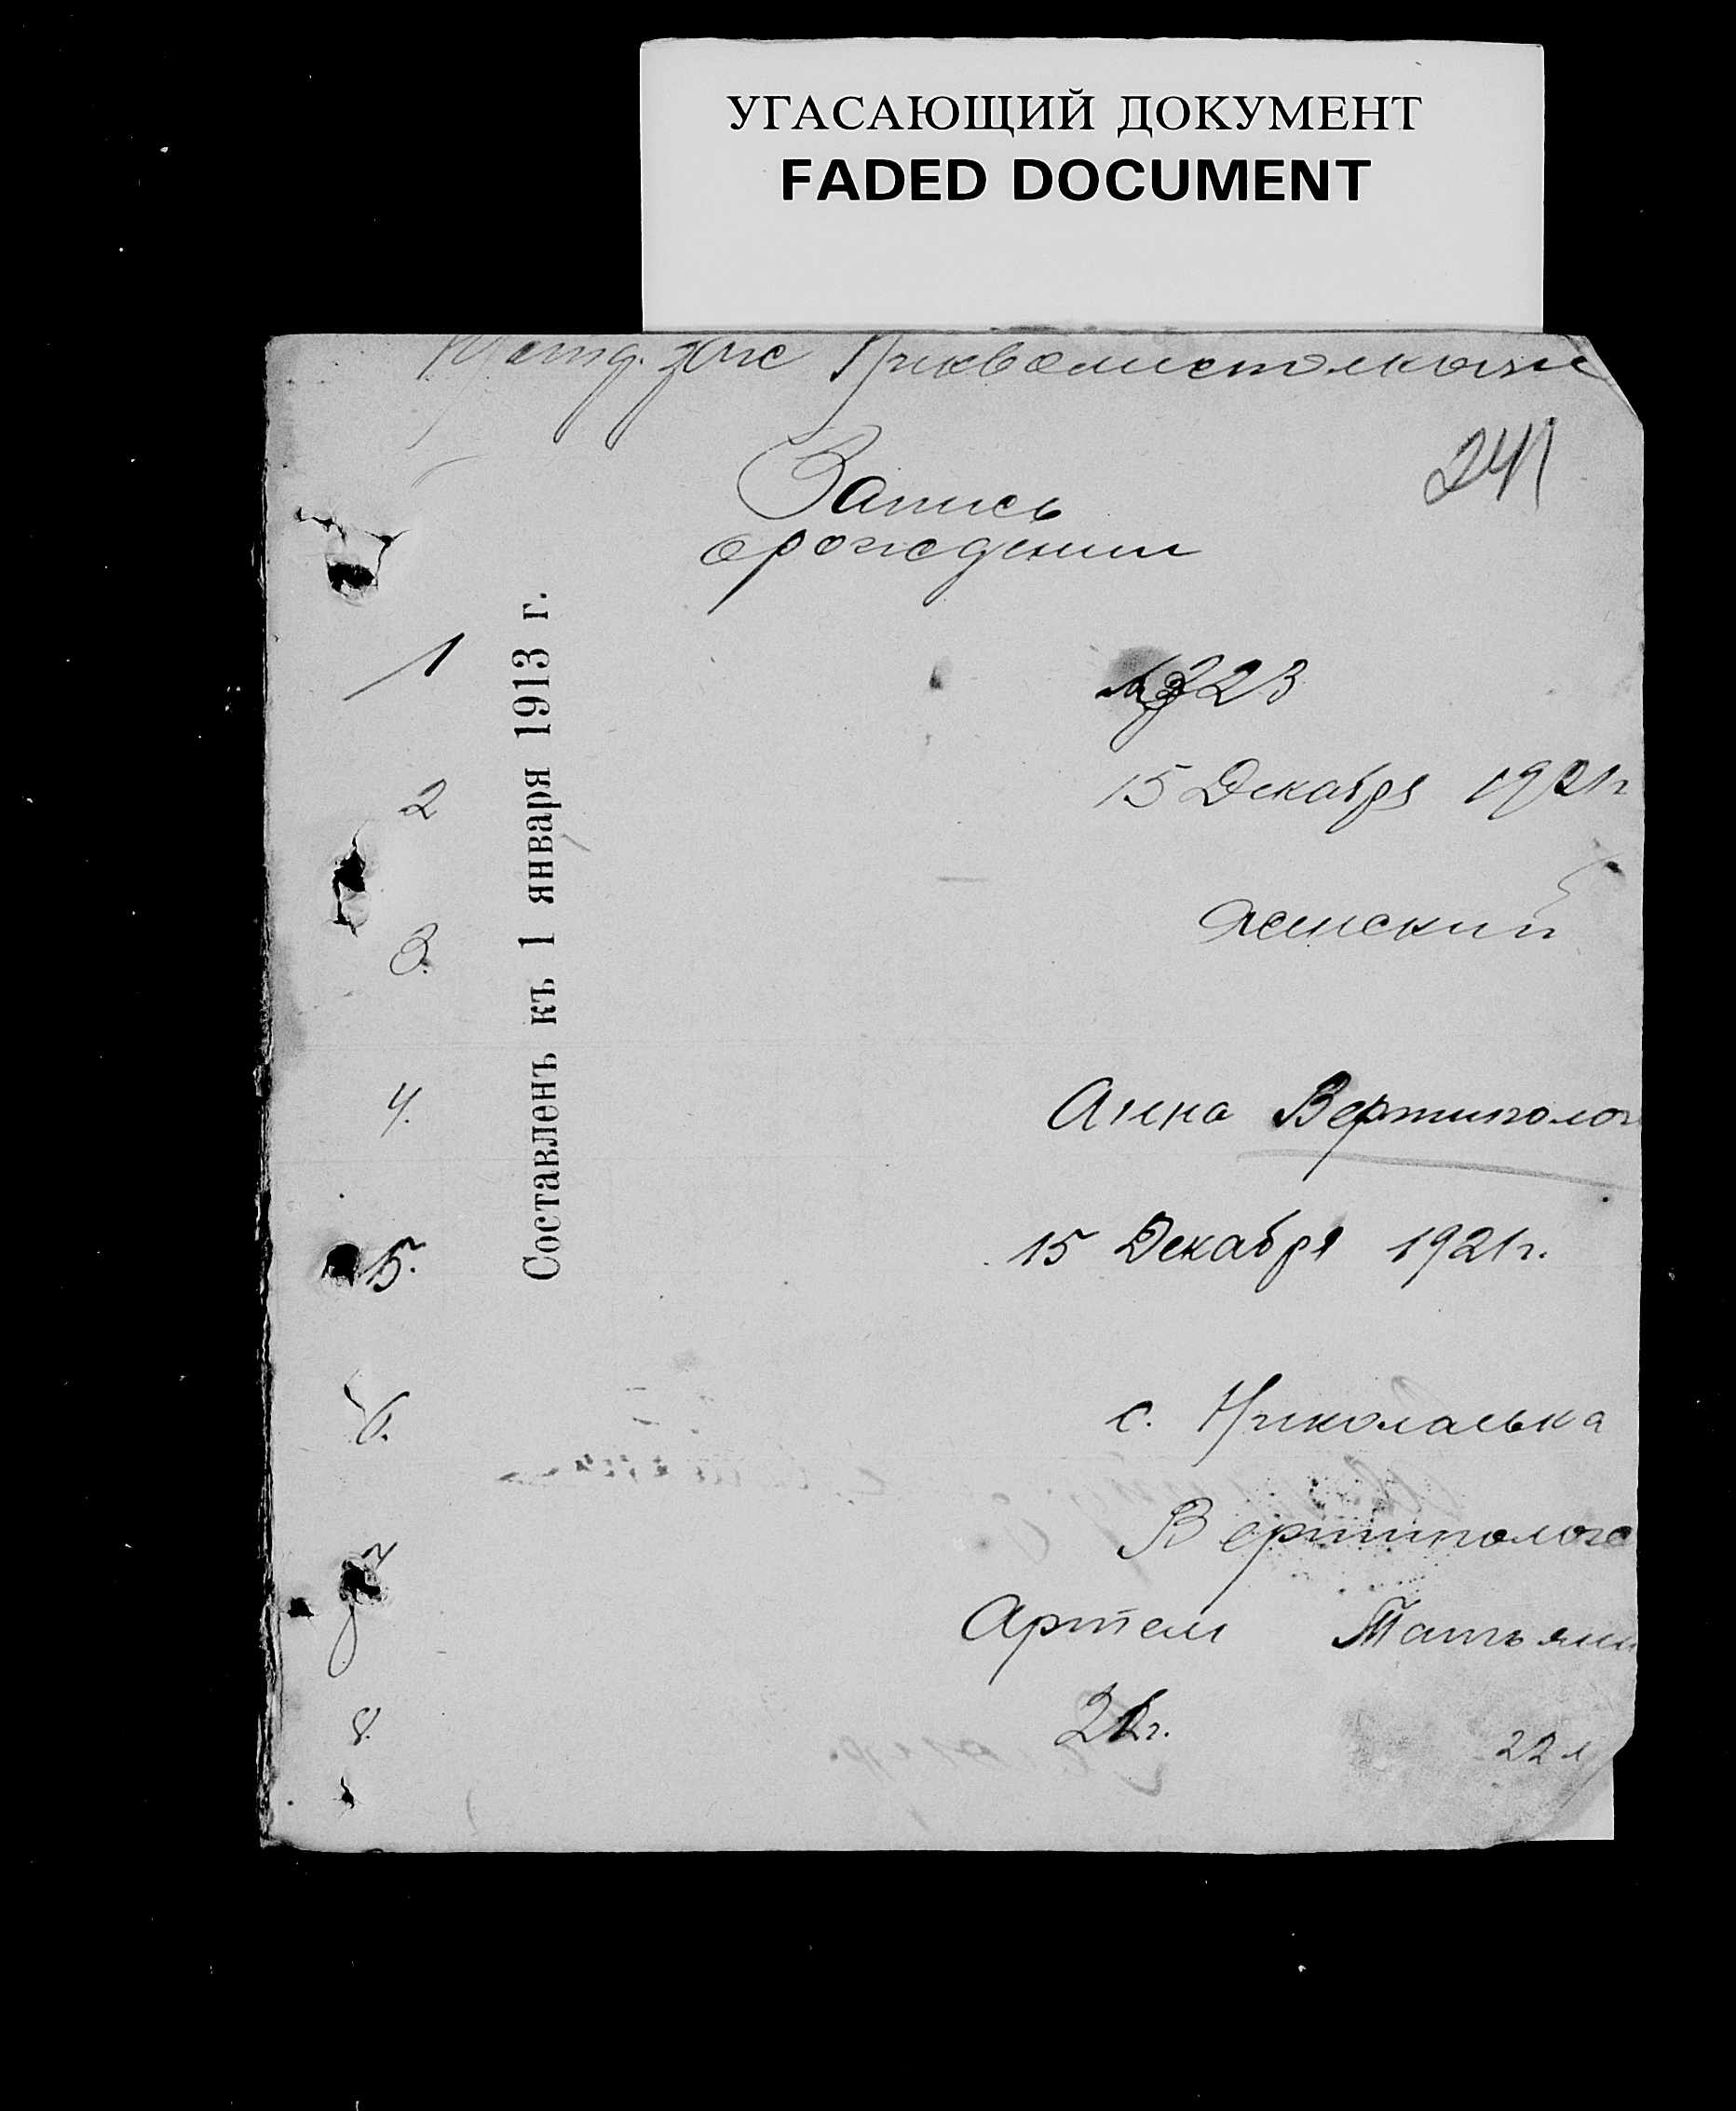 УГАСАЮЩИЙ ДОКУМЕНТ
FADED DOCUMENT
241
Запись
о рождении
Составленъ къ 1 января 1913 г.
1 № 323
2 15 Декабря 1921 г
3. женский
4. Анна Вертиполох
5. 15 Декабря 1921 г.
6. с. Николаевка
7 Вертиполох
Артем Татьяна
8. 22 л